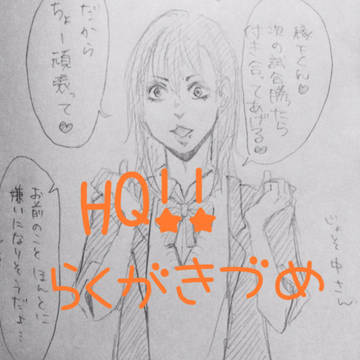 縁下くん♡
次の試合勝ったら
付き合ってあげる♡
だから
ちょー頑張って♡
じょそ中さん
お前のこと ほんとに
嫌いになりそうだよ…
HQ!!
らくがきづめ